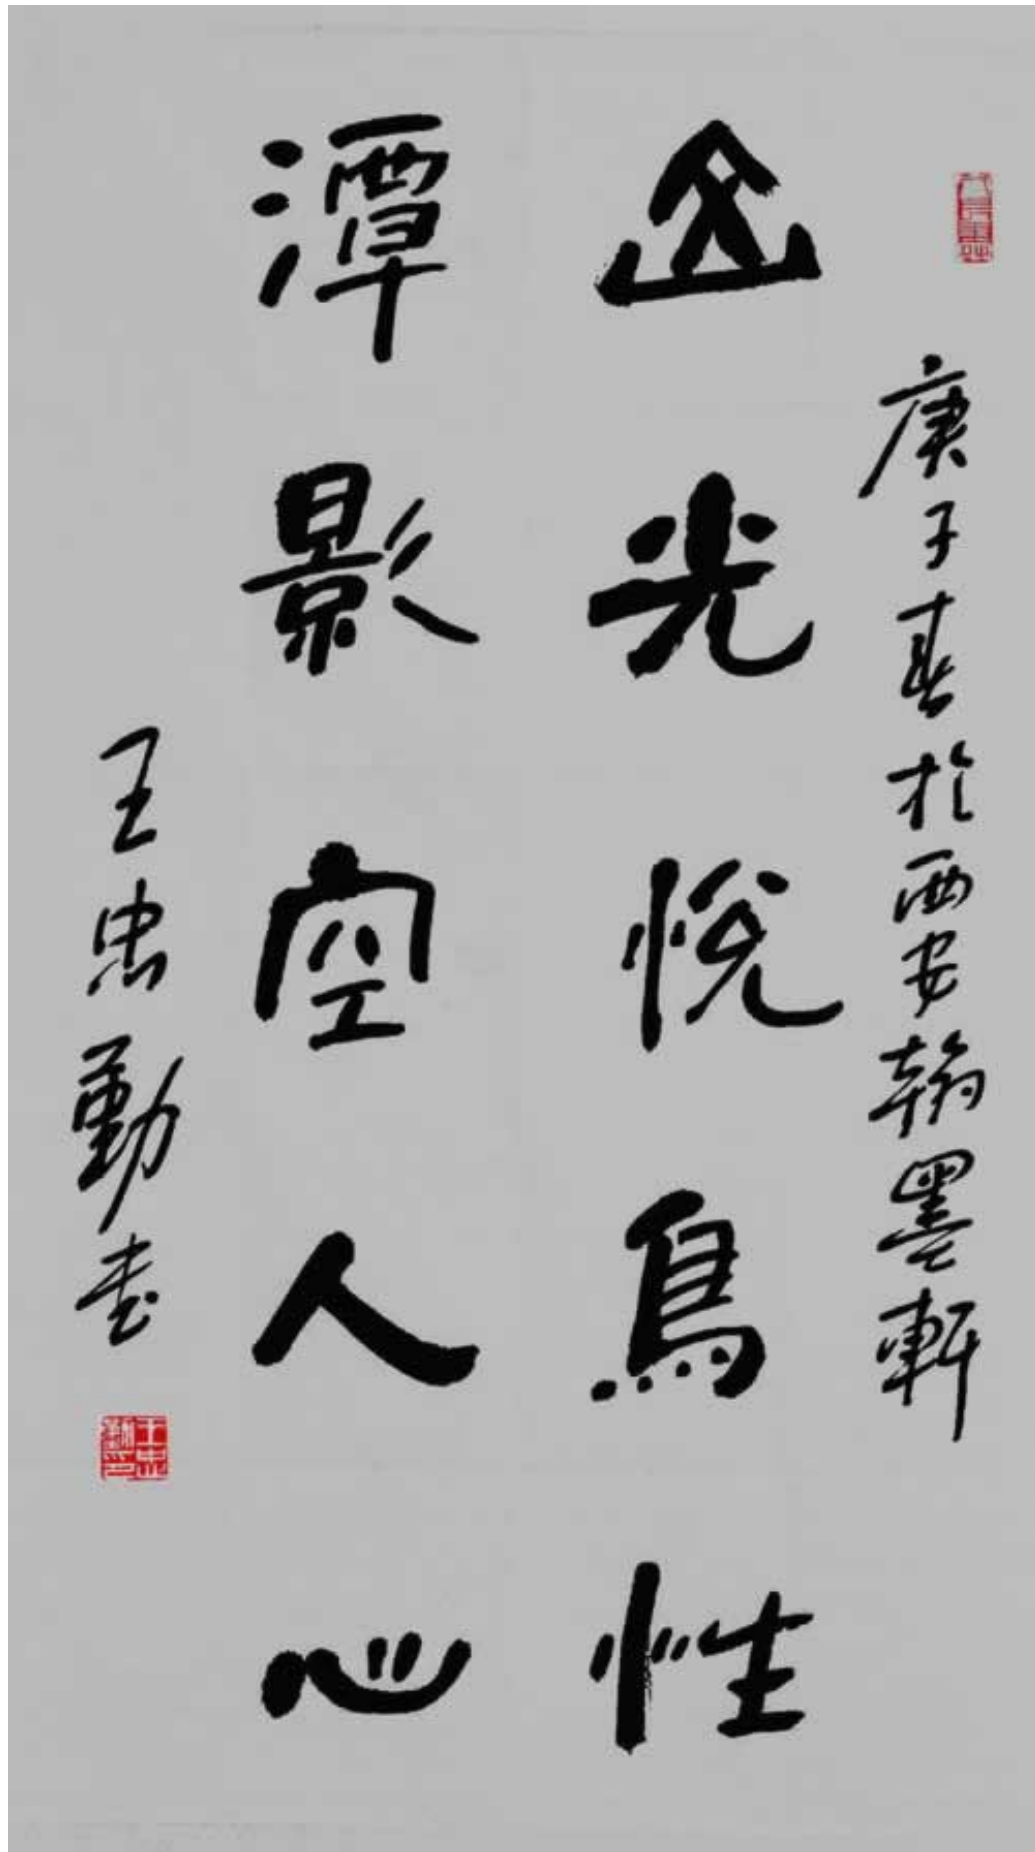 庚子春於西安翰墨軒
山光悦鳥性
潭影空人心
王忠勤書
王忠勤印